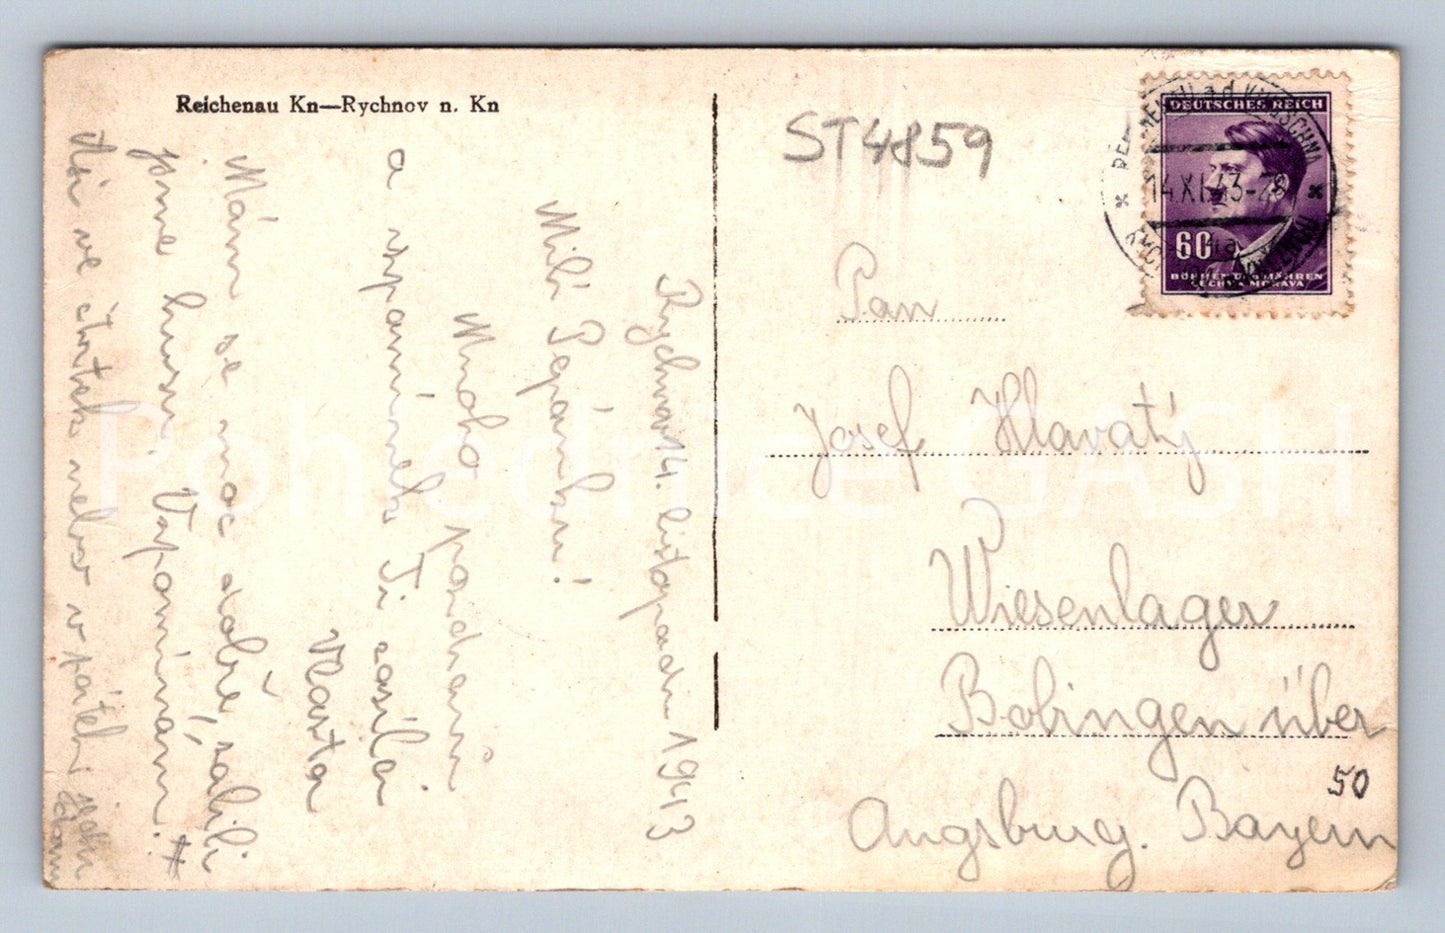 Reichenau Kn—Rychnov n. Kn
ST4859
DEUTSCHES REICH
60
BÖHMEN UND MÄHREN
ČECHY A MORAVA
14.XI.43-
Pan
Josef Hlavatý
Wiesenlager
Bobingen über
Augsburg. Bayern
50
Rychnov 14. listopadu 1943
Milý Pepánku!
Mnoho pozdravů
a vzpomínek Ti zasílá
Vlasta
Mám se moc dobře, zabili
jsme husu. Vzpomínám! #
ve čtvrtek nebo v pátek
Pohlednice GASH